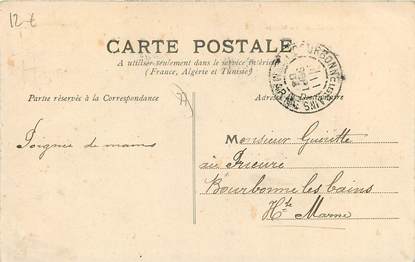 12 €
CARTE POSTALE
A utiliser seulement dans le service intérieur
(France, Algérie et Tunisie)
Partie réservée à la Correspondance
Adresse du Destinataire
Poignée de mains
Monsieur Guéritte
au Prieuré
Bourbonne les bains
Hte Marne
BOURBONNE-LES-BAINS